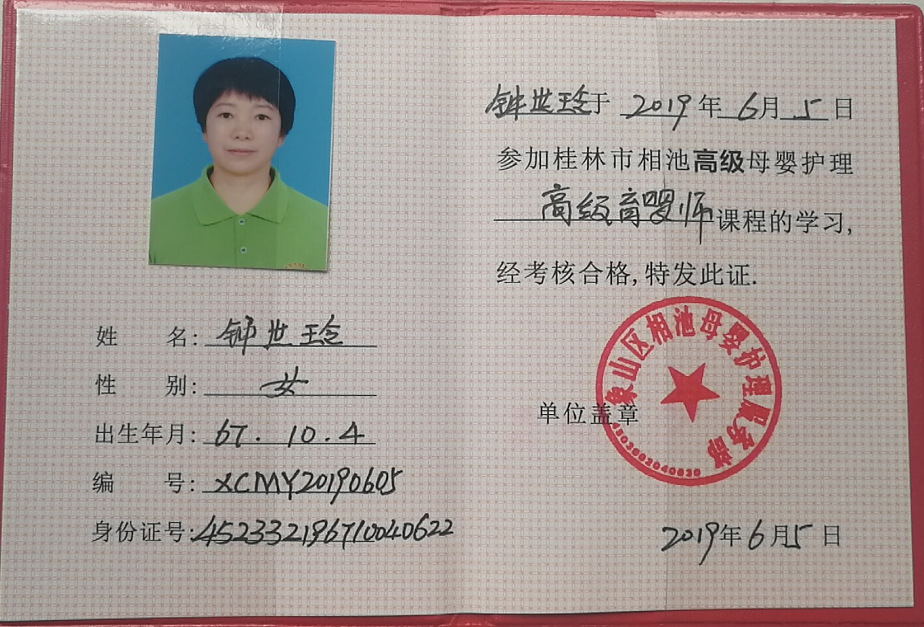 姓 名: 钟世玲
性 别: 女
出生年月: 67.10.4
编 号: XCMY20190605
身份证号: 452332196710040622
钟世玲于 2019 年 6月 5 日
参加桂林市相池高级母婴护理
高级育婴师课程的学习,
经考核合格,特发此证.
象山区相池母婴护理服务部
单位盖章
2019年6月5日